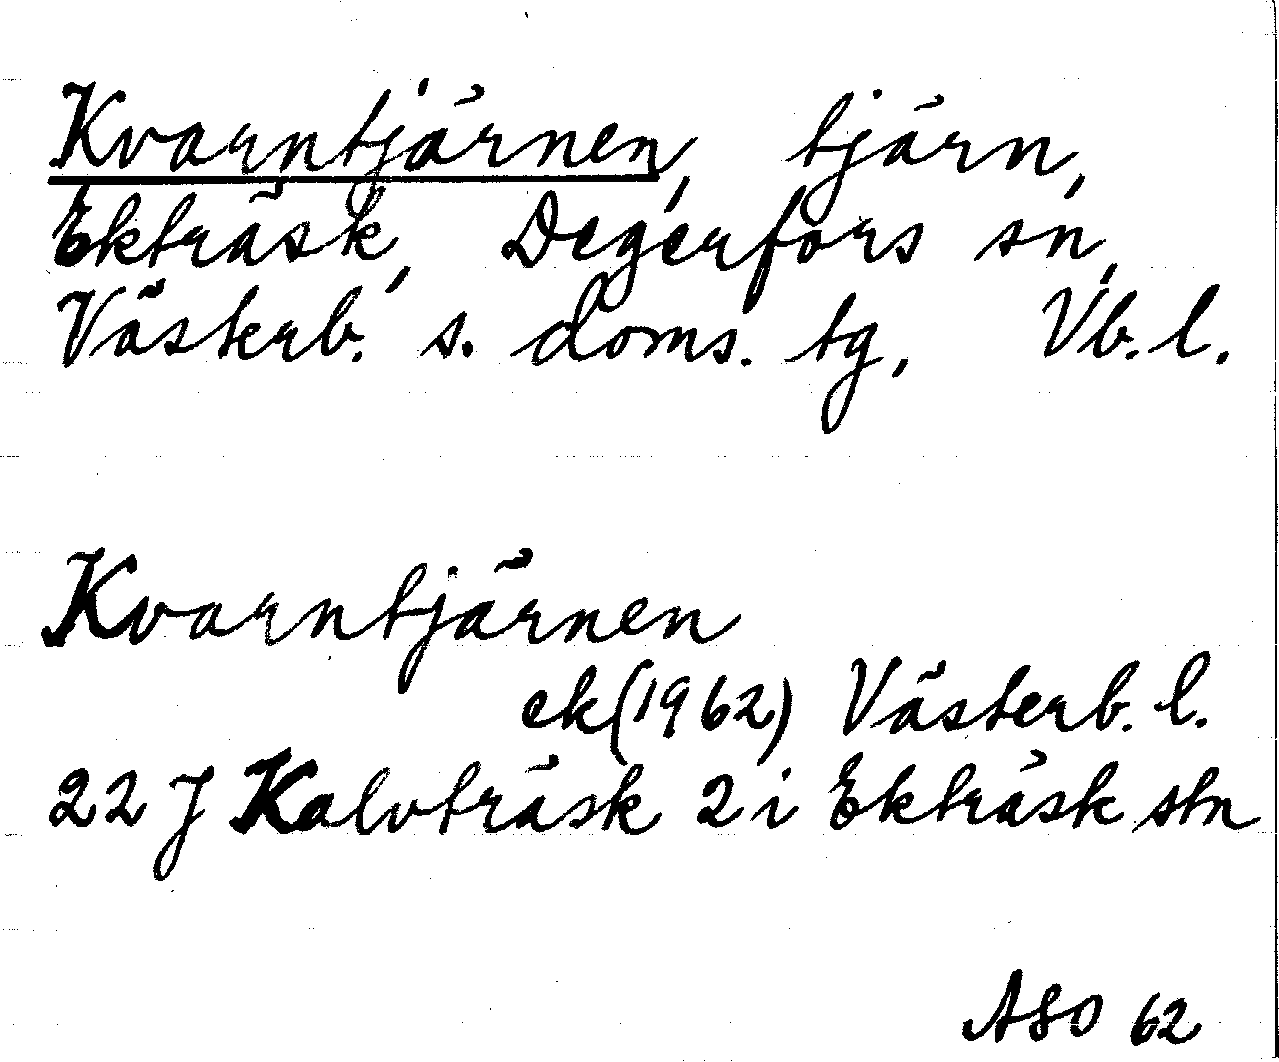 Kvarntjärnen, tjärn,
Ekträsk, Degerfors sn,
Västerb. s. doms. tg, Vb. l.
Kvarntjärnen
ek (1962) Västerb. l.
22 J Kalvträsk 2 i Ekträsk stn
ASO 62